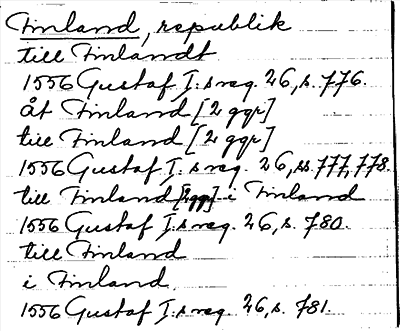 Finland, republik
till Finlandt
1556 Gustaf I:s reg. 26, s. 776.
åt Finland [2 ggr]
till Finland [2 ggr]
1556 Gustaf I:s reg. 26, ss. 777, 778.
till Finland [2 ggr] i Finland
1556 Gustaf I:s reg. 26, s. 780.
till Finland
i Finland
1556 Gustaf I:s reg. 26, s. 781.